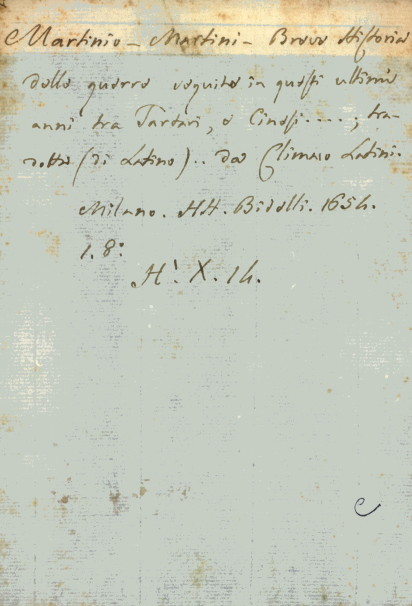 Martinio - Martini - Breve Historia
delle guerre seguite in questi ultimi
anni tra Tartari, e Cinesi....; tra-
dotta (di Latino).. da Climaco Latini.
Milano. HH. Bidelli. 1654.
1. 8:
H! X. 14.